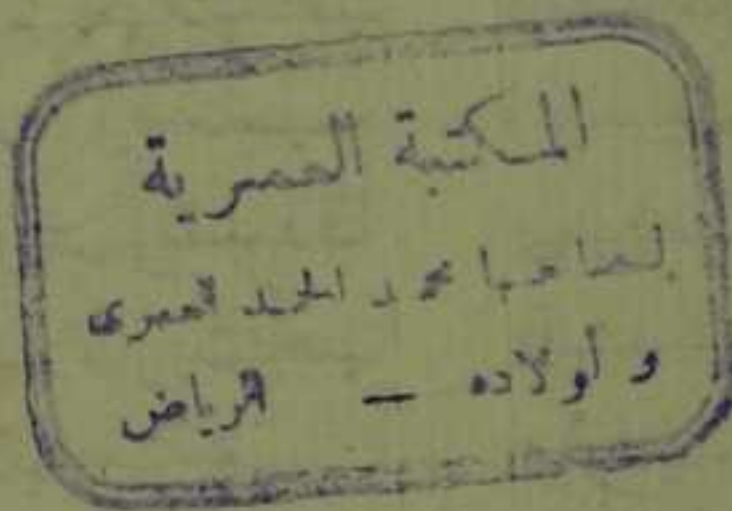 المكتبة العمرية
لصاحبها محمد الحمد العمري
و أولاده — الرياض